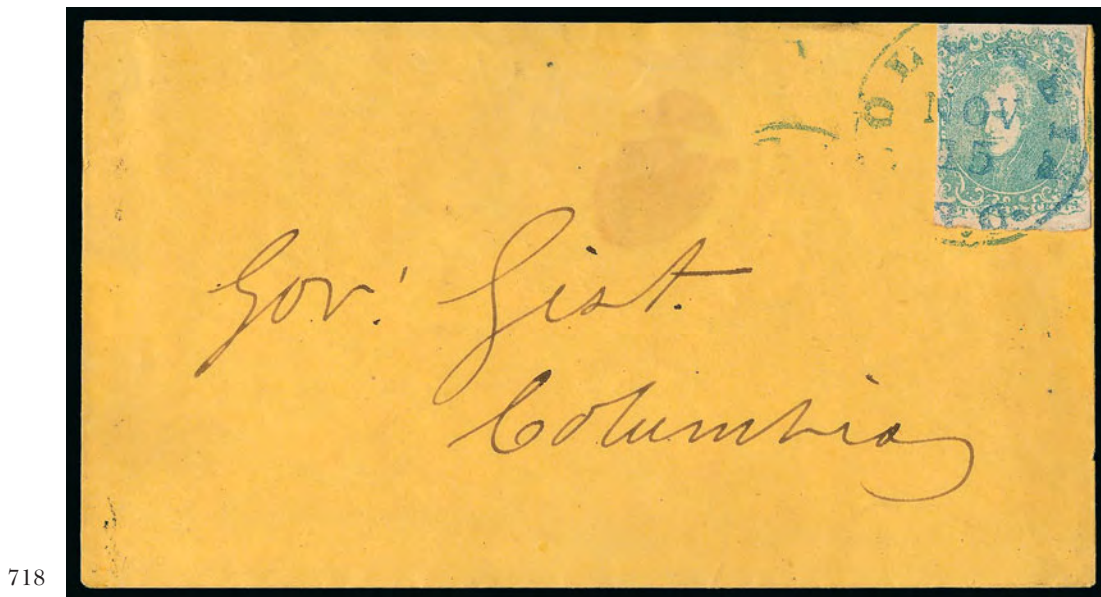 NOV
15
Gov! Gist.
Columbia
718